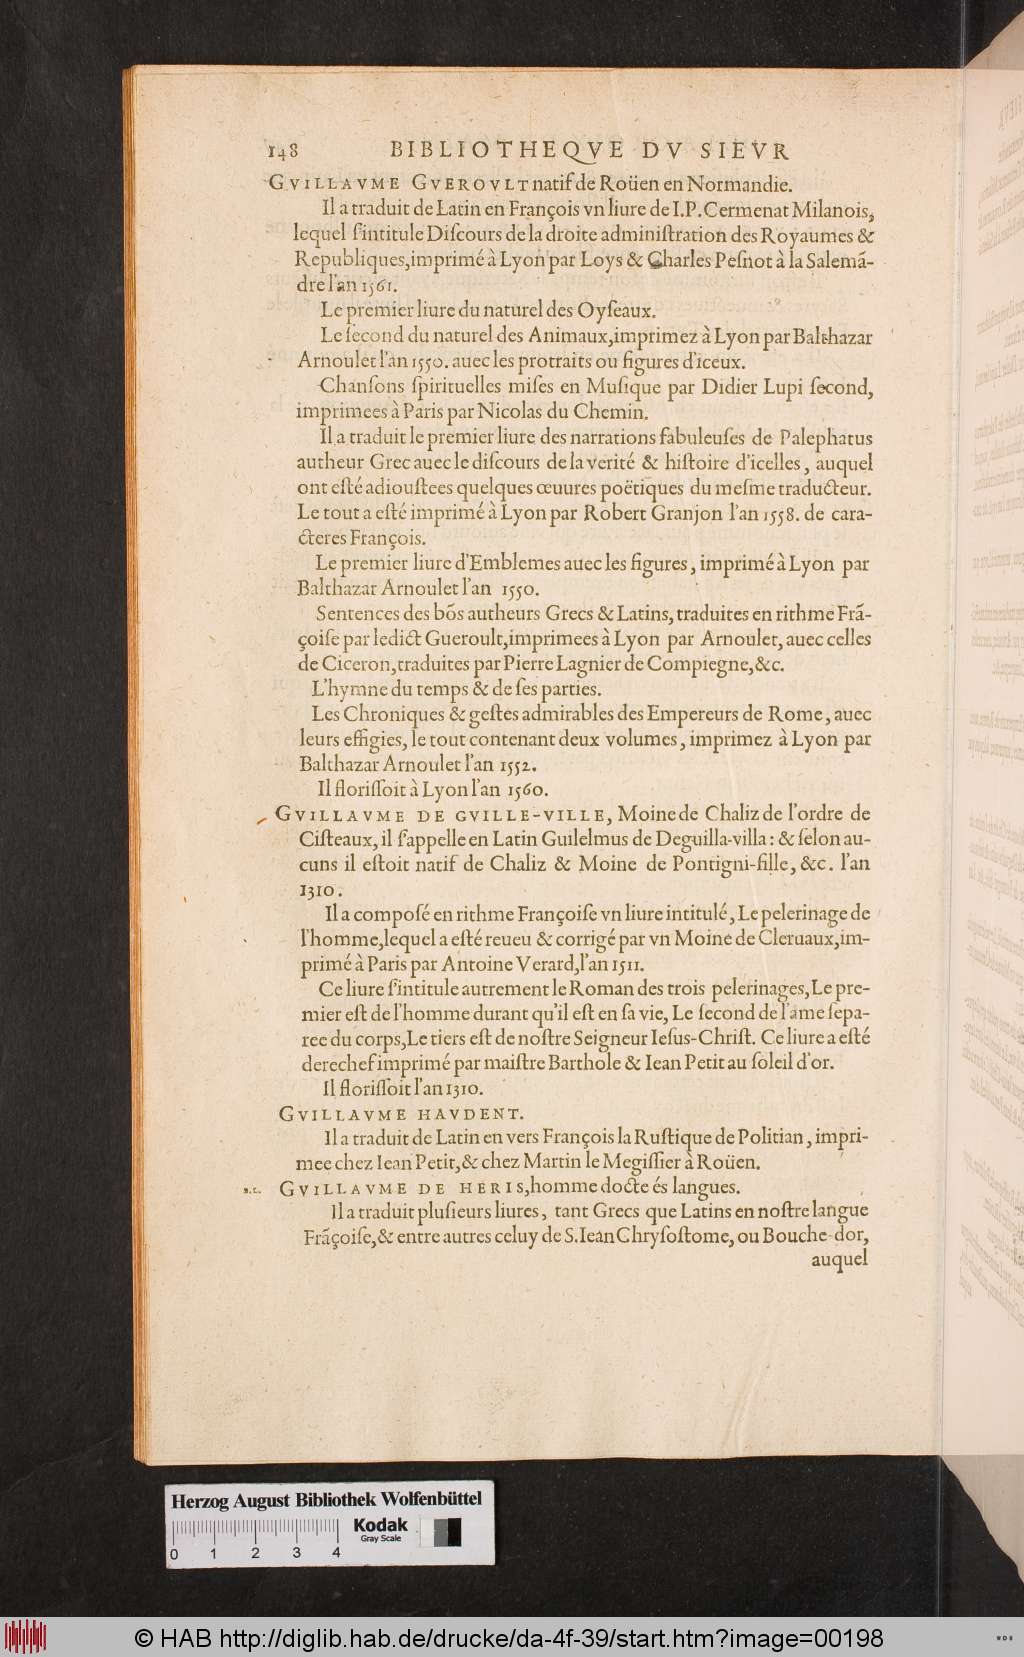 148 BIBLIOTHEQVE DV SIEVR
GVILLAVME GVEROVLT natif de Roüen en Normandie.
Il a traduit de Latin en François vn liure de I.P. Cermenat Milanois,
lequel ſ'intitule Diſcours de la droite adminiſtration des Royaumes &
Republiques, imprimé à Lyon par Loys & Charles Peſnot à la Salemã-
dre l'an 1561.
Le premier liure du naturel des Oyſeaux.
Le ſecond du naturel des Animaux, imprimez à Lyon par Balthazar
Arnoulet l'an 1550. auec les protraits ou figures d'iceux.
Chanſons ſpirituelles miſes en Muſique par Didier Lupi ſecond,
imprimees à Paris par Nicolas du Chemin.
Il a traduit le premier liure des narrations fabuleuſes de Palephatus
autheur Grec auec le diſcours de la verité & hiſtoire d'icelles, auquel
ont eſté adiouſtees quelques œuures poëtiques du meſme traducteur.
Le tout a eſté imprimé à Lyon par Robert Granjon l'an 1558. de cara-
cteres François.
Le premier liure d'Emblemes auec les figures, imprimé à Lyon par
Balthazar Arnoulet l'an 1550.
Sentences des bõs autheurs Grecs & Latins, traduites en rithme Frã-
çoiſe par ledict Gueroult, imprimees à Lyon par Arnoulet, auec celles
de Ciceron, traduites par Pierre Lagnier de Compiegne, &c.
L'hymne du temps & de ſes parties.
Les Chroniques & geſtes admirables des Empereurs de Rome, auec
leurs effigies, le tout contenant deux volumes, imprimez à Lyon par
Balthazar Arnoulet l'an 1552.
Il floriſſoit à Lyon l'an 1560.
GVILLAVME DE GVILLE-VILLE, Moine de Chaliz de l'ordre de
Ciſteaux, il ſ'appelle en Latin Guilelmus de Deguilla-villa: & ſelon au-
cuns il eſtoit natif de Chaliz & Moine de Pontigni-fille, &c. l'an
1310.
Il a compoſé en rithme Françoiſe vn liure intitulé, Le pelerinage de
l'homme, lequel a eſté reueu & corrigé par vn Moine de Cleruaux, im-
primé à Paris par Antoine Verard, l'an 1511.
Ce liure ſ'intitule autrement le Roman des trois pelerinages, Le pre-
mier eſt de l'homme durant qu'il eſt en ſa vie, Le ſecond de l'ame ſepa-
ree du corps, Le tiers eſt de noſtre Seigneur Ieſus-Chriſt. Ce liure a eſté
derechef imprimé par maiſtre Barthole & Iean Petit au ſoleil d'or.
Il floriſſoit l'an 1310.
GVILLAVME HAVDENT.
Il a traduit de Latin en vers François la Ruſtique de Politian, impri-
mee chez Iean Petit, & chez Martin le Megiſſier à Roüen.
GVILLAVME DE HERIS, homme docte és langues.
Il a traduit pluſieurs liures, tant Grecs que Latins en noſtre langue
Frãçoiſe, & entre autres celuy de S. Iean Chryſoſtome, ou Bouche-dor,
auquel
Herzog August Bibliothek Wolfenbüttel
Kodak
Gray Scale
0 1 2 3 4
© HAB http://diglib.hab.de/drucke/da-4f-39/start.htm?image=00198